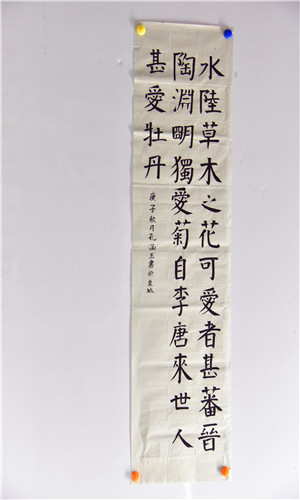 水陸草木之花可愛者甚蕃晉
陶淵明獨愛菊自李唐來世人
甚愛牡丹
庚子秋月孔涵王書於皇城